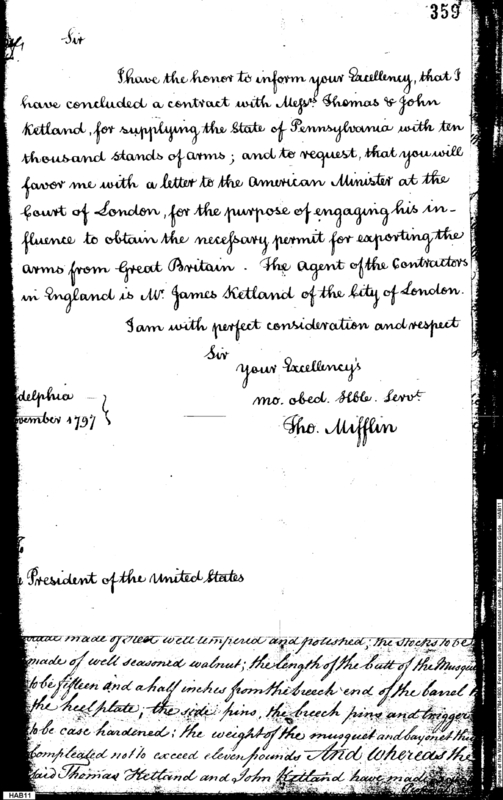 359
Sir
I have the honor to inform your Excellency, that I
have concluded a contract with Messrs. Thomas & John
Ketland, for supplying the State of Pennsylvania with ten
thousand stands of arms; and to request, that you will
favor me with a letter to the American Minister at the
Court of London, for the purpose of engaging his in-
fluence to obtain the necessary permit for exporting the
arms from Great Britain. The Agent of the Contractors
in England is Mr. James Ketland of the City of London.
I am with perfect consideration and respect
Sir
your Excellency's
mo. obed. Hble. Servt.
Tho. Mifflin
delphia
vember 1797
President of the United States
made of well tempered and polished; the stocks to be
made of well seasoned walnut; the length of the butt of the Musque
to be fifteen and a half inches from the breech end of the barrel t
the heelplate; the side pins, the breech pins and trigger
to be case hardened; the weight of the musquet and bayonet thu
compleated not to exceed eleven pounds And whereas the
said Thomas Ketland and John Ketland have made
HAB11
HAB11